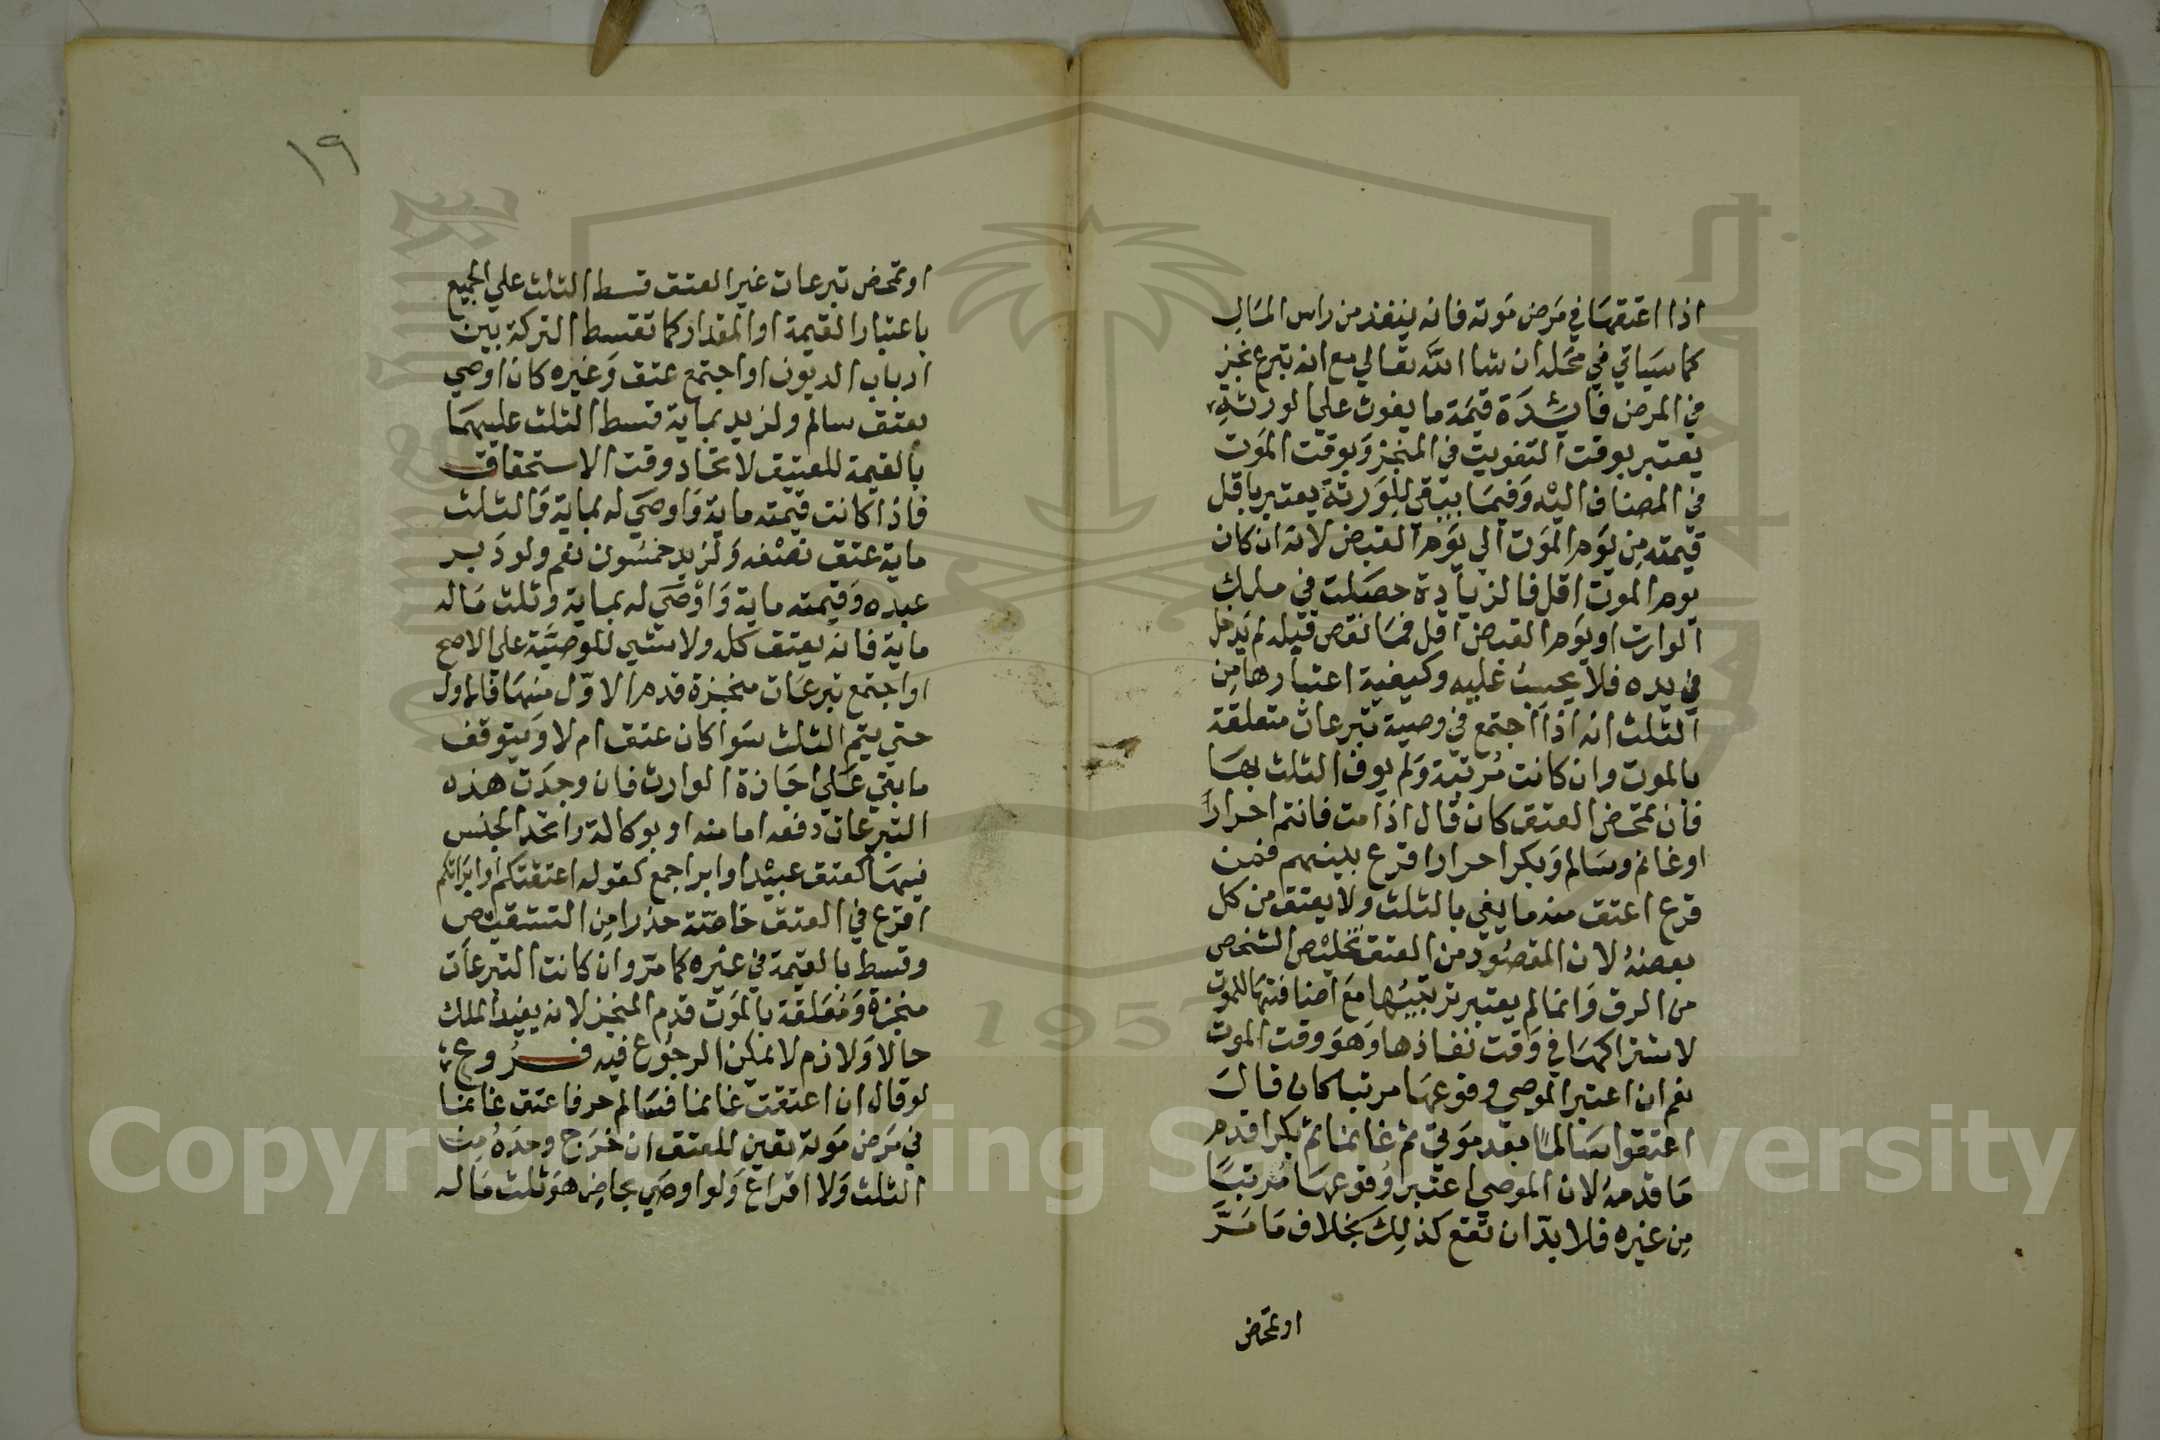 اذا اعتقها في مرض موته فانه ينفذ من راس المال
كما سياتي في محله ان شا الله تعالي مع انه تبرع نجز
في المرض فايدة قيمة ما يفوت علي الورثة
يعتبر بوقت التفويت في المنجز وبوقت الموت
في المضاف اليه وفيما يبقي للورثة يعتبر باقل
قيمته من يوم الموت الي يوم القبض لانه ان كان
يوم الموت اقل فالزيادة حصلت في ملك
الوارث او يوم القبض اقل فما نقص قبله لم يدخل
في يده فلا يحسب عليه وكيفية اعتبارها من
الثلث انه اذا اجتمع في وصية تبرعات متعلقة
بالموت وان كانت مرتبة ولم يوف الثلث بها
فان تمحض العتق كان قال اذا مت فانتم احرارا
او غانم وسالم وبكر احرارا اقرع بينهم فمن
قرع اعتق منه ما يفي بالثلث ولا يعتق من كل
بعضه لان المقصود من العتق تخليص الشخص
من الرق وانما لم يعتبر ترتيبها مع اضافتها للموت
لاشتراكها في وقت نفاذها وهو وقت الموت
نعم ان اعتبر الموصي وقوعها مرتبا كان قال
اعتقوا سالما بعد موتي ثم غانما ثم بكرا قدم
ما قدمه لان الموصي اعتبر وقوعها مرتبا
من غيره فلا بد ان تقع كذلك بخلاف ما مر
او تمحض
١٩
او تمحض تبرعات غير العتق قسط الثلث علي الجميع
باعتبار القيمة او المقدار كما تقسط التركة بين
ارباب الديون او اجتمع عتق وغيره كان اوصي
بعتق سالم ولزيد بماية قسط الثلث عليهما
بالقيمة للعتيق لاتحاد وقت الاستحقاق
فاذا كانت قيمته ماية واوصي له بماية والثلث
ماية عتق نصفه ولزيد خمسون نعم ولو دبر
عبده وقيمته ماية واوصي له بماية وثلث ماله
ماية فانه يعتق كله ولا شي للوصية علي الاصح
او اجتمع تبرعات منجزة قدم الاول منها فالاول
حتي يتم الثلث سوا كان عتق ام لا ويتوقف
ما بقي علي اجازة الوارث فان وجدت هذه
التبرعات دفعه اما منه او بوكالة واتحد الجنس
فيها كعتق عبيد او ابرا جمع كقوله اعتقتكم او ابراتكم
اقرع في العتق خاصة حذرا من التشقيص
وقسط بالقيمة في غيره كما مر وان كانت التبرعات
منجزة ومعلقة بالموت قدم المنجز لانه يفيد الملك
حالا ولازم لا يمكن الرجوع فيه فروع
لو قال ان اعتقت غانما فسالم حر فاعتق غانما
في مرض موته تعين للعتق ان خرج وحده من
الثلث ولا اقراع ولو اوصي بحاضر هو ثلث ماله
Copyright © King Saud University
1957